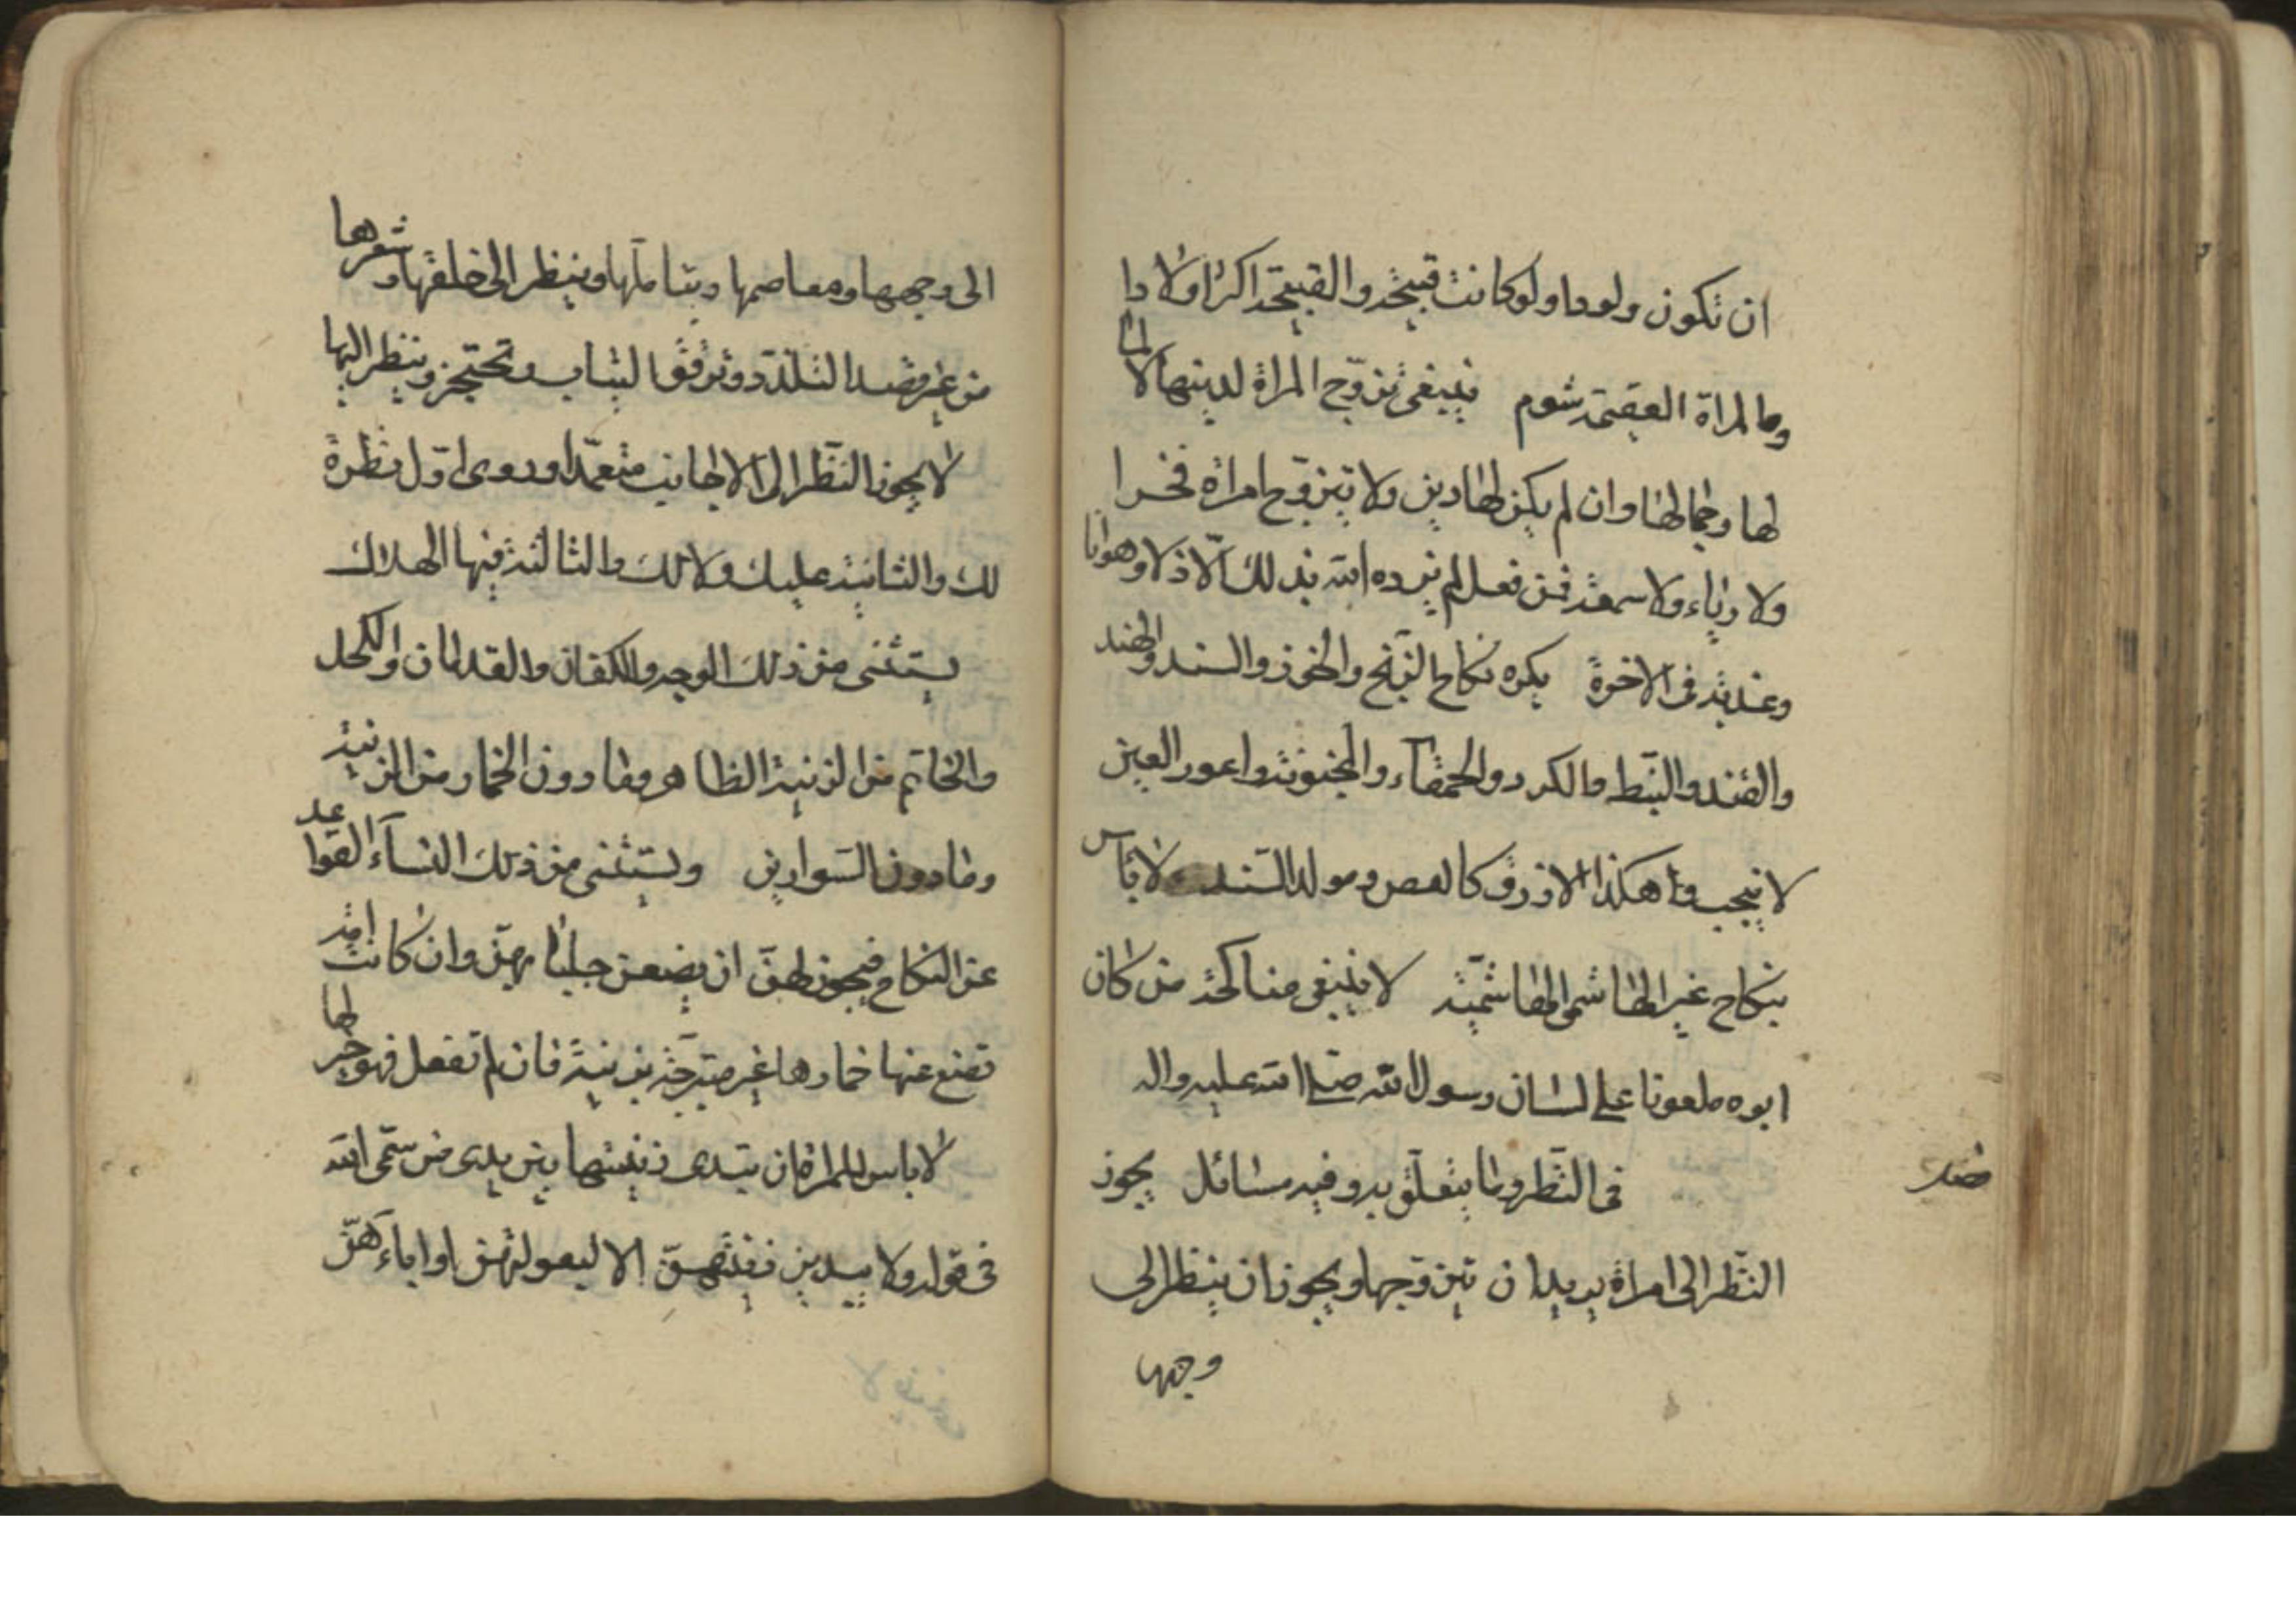 ان تكون ولودا ولو كانت قبيحة والقبيحة اكثر اولادا
والمراة العقيمة شوم فينبغى تزوج المراة لدينها لا لما
لها وجمالها وان لم يكن لها دين ولا يتزوج امراة فخرا
ولا رياء ولا سمعة فمن فعل لم يزده الله بذلك الّا ذلا وهوانا
وعذبه فى الاخرة يكره نكاح الزنج والخوز والسند والهند
والقند والنبط والكرد والحمقاء والمجنونة واعور العين
لا ينجب وهكذا الازرق كالفص ومولد السند ولا باس
بنكاح غير الهاشمى الهاشميّة لا ينبغى مناكحة من كان
ابوه ملعونا على لسان رسول الله صلى الله عليه واله
فصل
فى النّظر وما يتعلّق به وفيه مسائل يجوز
النّظر الى امراة يريد ان يتزوّجها ويجوز ان ينظر الى
وجهها
الى وجهها ومعاصمها ويتاملها وينظر الى خلفها وشعرها
من غير قصد التلذذ وترقق الثياب وتحتجز وينظر اليها
لا يجوز النّظر الى الاجانب متعمّدا وروى اوّل نظرة
لك والثانية عليك ولا لك والثالثة فيها الهلاك
يستثنى من ذلك الوجه والكفان والقدمان والكحل
والخاتم من الزينة الظاهر وما دون الخمار من الزينة
وما دون السّوارين ويستثنى من ذلك النساء القواعد
عن النكاح فيجوز لهنّ ان يضعن جلبابهنّ وان كانت امة
تضع عنها خمارها غير متبرّجة بزينة فان لم تفعل فهو خير لها
لا باس للمراة ان تبدى زينتها بين يدى من سمّى الله
فى قوله ولا يبدين زينتهنّ الا لبعولتهن او اباءهنّ